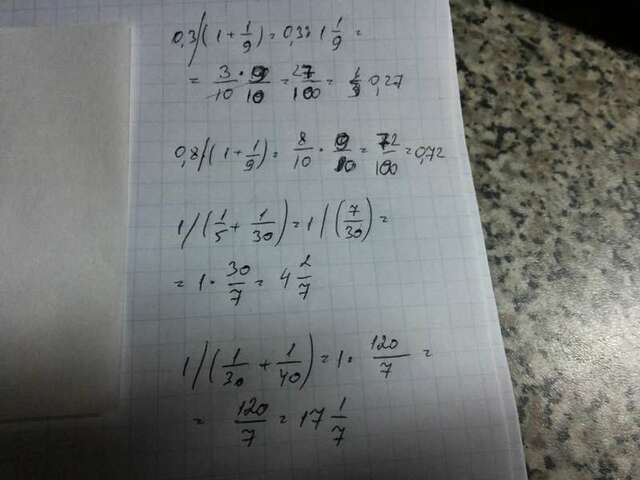 0,3/(1+1/9)=0,3: 1 1/9 =
= 3/10 · 9/10 = 27/100 = 0,27
0,8/(1+1/9)= 8/10 · 9/10 = 72/100 = 0,72
1/(1/5+1/30)=1/(7/30)=
= 1· 30/7 = 4 2/7
1/(1/30+1/40)=1· 120/7 =
= 120/7 = 17 1/7